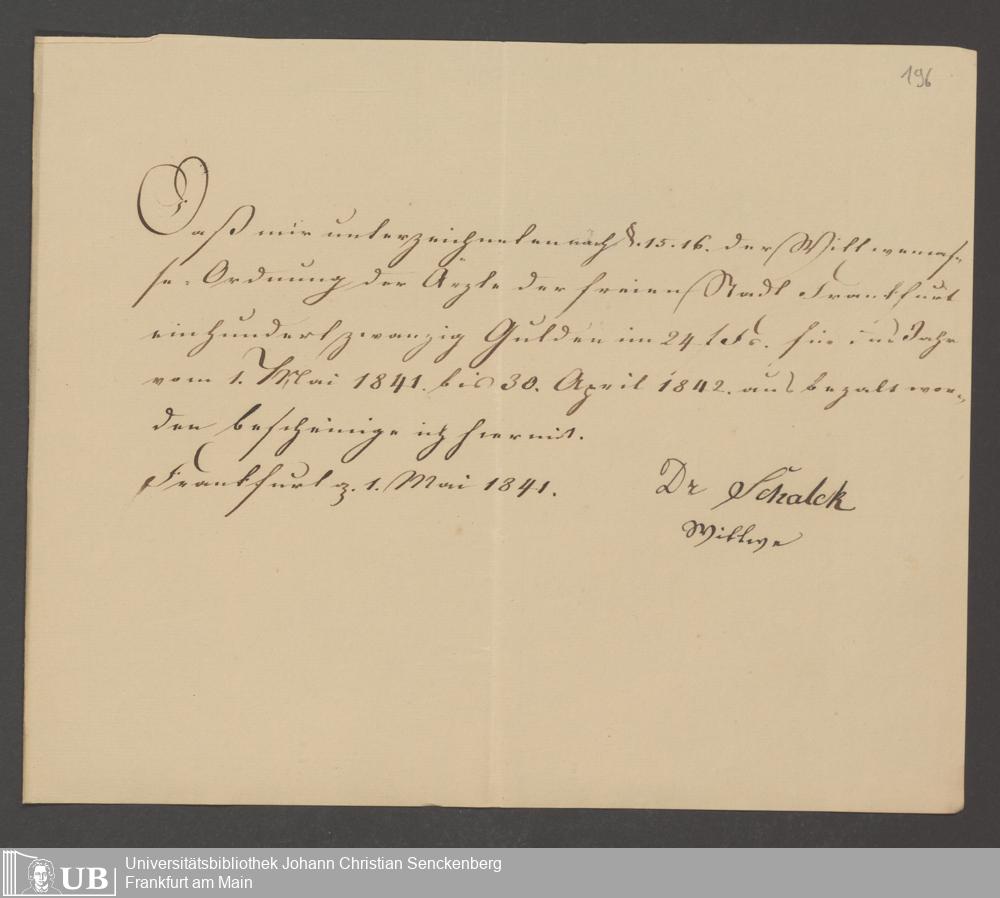 196
Daß mir unterzeichneten nach §. 15. 16. der Wittwencas-
se-Ordnung der Ärzte der freien Stadt Frankfurt
einhundert zwanzig Gulden im 24 f Fs. für ins Jahr
vom 1. Mai 1841. bis 30. April 1842. aus bezalt wor-
den bescheinige ich hiermit.
Frankfurt d. 1. Mai 1841.
Dr Schalck
Wittwe
UB
Universitätsbibliothek Johann Christian Senckenberg
Frankfurt am Main